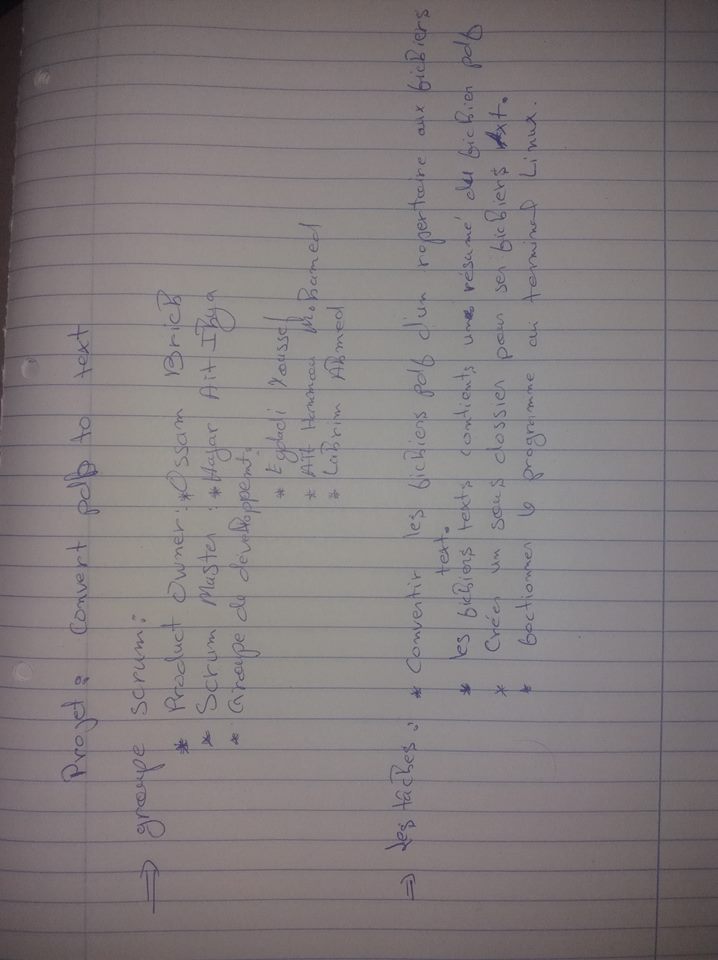 Projet : Convert pdf to text
⇒ groupe scrum :
* Product Owner : * Ossam Brich
* Scrum Master : * Hajar Ait-Ihya
* Groupe de développement :
* Youssef
* Ait Hammou Mohamed
* Labrim Ahmed
⇒ les tâches : * Convertir les fichiers pdf d'un ropertoire aux fichiers
text.
* les fichiers texts contients une résumé du fichier pdf
* Créer un sous dossier pour ses fichiers text.
* foctionner le programme au terminal Linux.